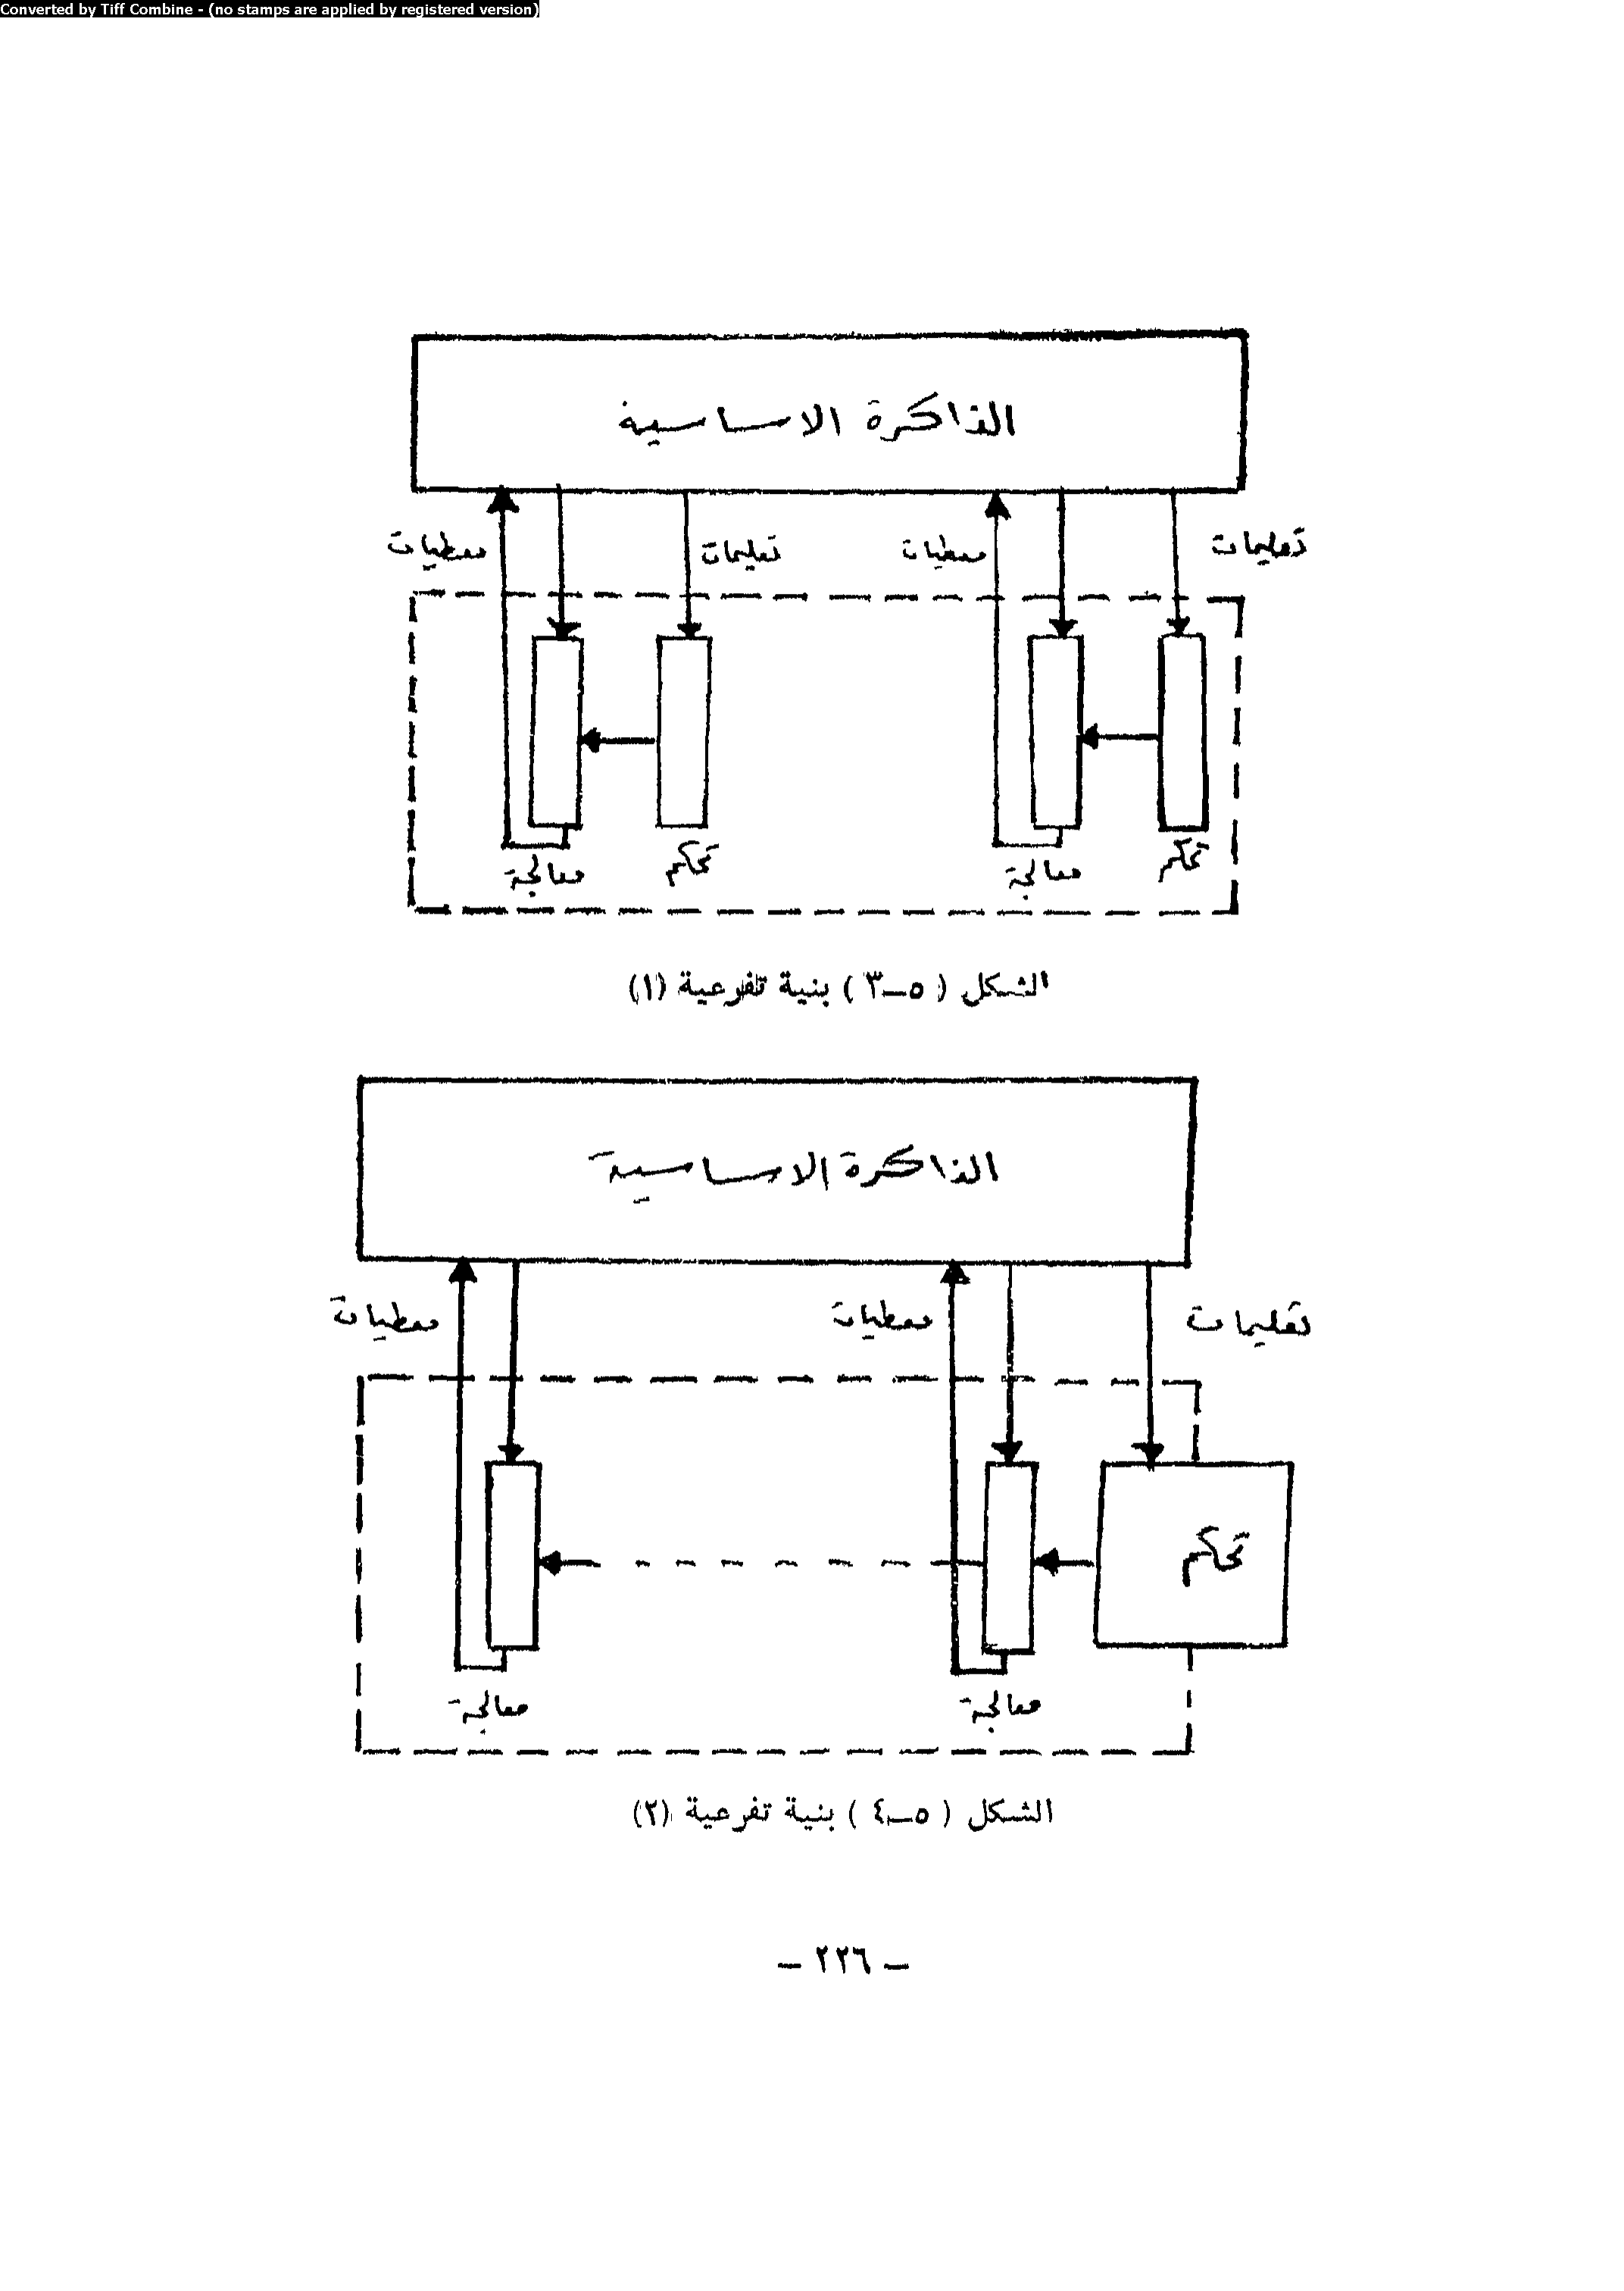 Converted by Tiff Combine - (no stamps are applied by registered version)
الذاكرة الاساسية
تعليمات
معطيات
تعليمات
معطيات
تحكم
معالجة
تحكم
معالجة
الشكل ( ٥ــ٣ ) بنية تفرعية (١)
الذاكرة الاساسية
تعليمات
معطيات
معطيات
تحكم
معالجة
معالجة
الشكل ( ٥ــ٤ ) بنية تفرعية (٢)
– ٢٢٦ –